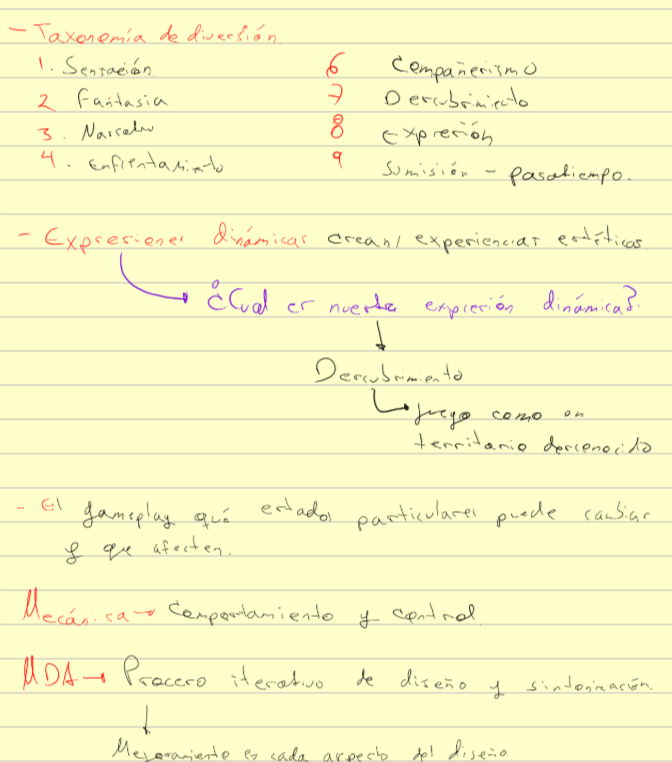 - Taxonomía de diversión
1. Sensación
2 Fantasia
3. Narrativa
4. Enfrentamiento
6 Compañerismo
7 Descubrimiento
8 Expresión
9 Sumisión - pasatiempo.
- Expresiones dinámicas crean/ experiencias estéticas
¿Cual es nuestra expresión dinámica?
Descubrimiento
Juego como un
territorio desconocido
- El gameplay qué estados particulares puede cambiar
y que afecten.
Mecánica → Comportamiento y control
MDA → Proceso iterativo de diseño y sintonización.
Mejoramiento es cada aspecto del diseño